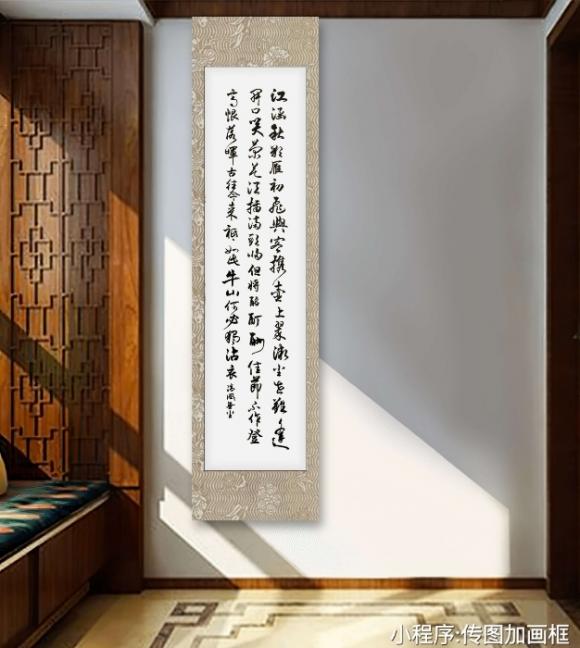 江涵秋影雁初飛與客携壺上翠微尘世難逢
開口笑菊花須插滿頭歸但將酩酊酬佳節不作登
高恨落暉古往今來祇如此牛山何必獨沾衣
小程序:传图加画框